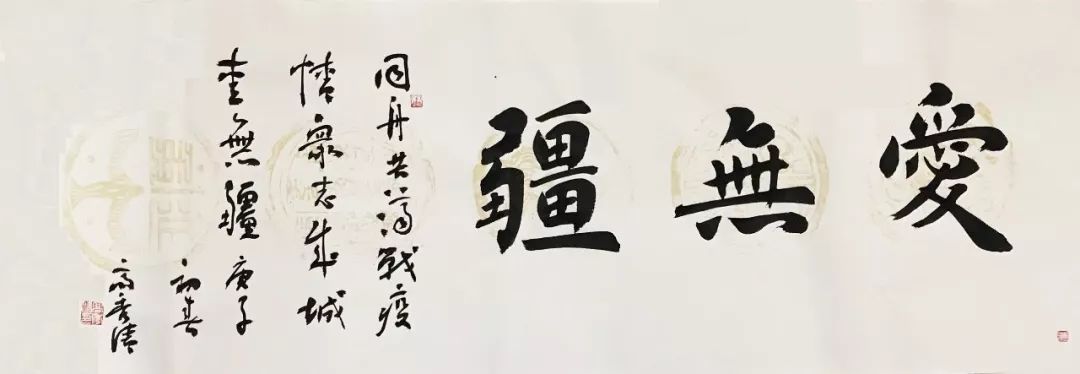 愛無疆
同舟共濟戰疫
情衆志成城
愛無疆 庚子
初春
高秀清